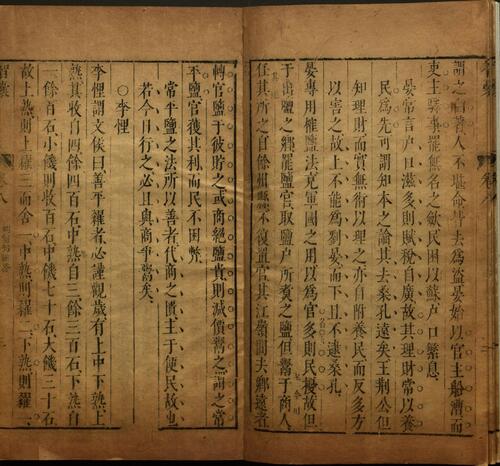 謂之白著人不堪命皆去為盜晏始以官主船漕而
吏主驛事罷無名之歛民困以蘇戶口繁息
晏常言戶口滋多則賦稅自廣故其理財常以養
民為先可謂知本之論其去桑孔遠矣王荊公但
知理財而實無術以理之亦自附養民而反多方
以害之故上不能為劉晏而下且不逮桑孔
晏專用榷鹽法充軍國之用以為官多則民擾故但
于出鹽之鄉置鹽官取鹽戶所煑之鹽但鬻于商人
任其所之自餘州縣不復置官其江嶺間去鄉遠者
轉官鹽于彼貯之或商絕鹽貴則減價鬻之謂之常
平鹽官獲其利而民不困弊
常平鹽之法所以善者代商之匱主于便民故也
若今日行之必且與商爭鬻矣
○李悝
李悝謂文侯曰善平糴者必謹觀歲有上中下熟上
熟其收自四餘四百石中熟自三餘三百石下熟自
一餘百石小饑則收百石中饑七十石大饑三十石
故上熟則上糴三而舍一中熟則糴二下熟則糴一
智囊
卷八